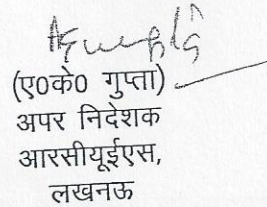 (ए०के० गुप्ता)
अपर निदेशक
आरसीयूईएस,
लखनऊ